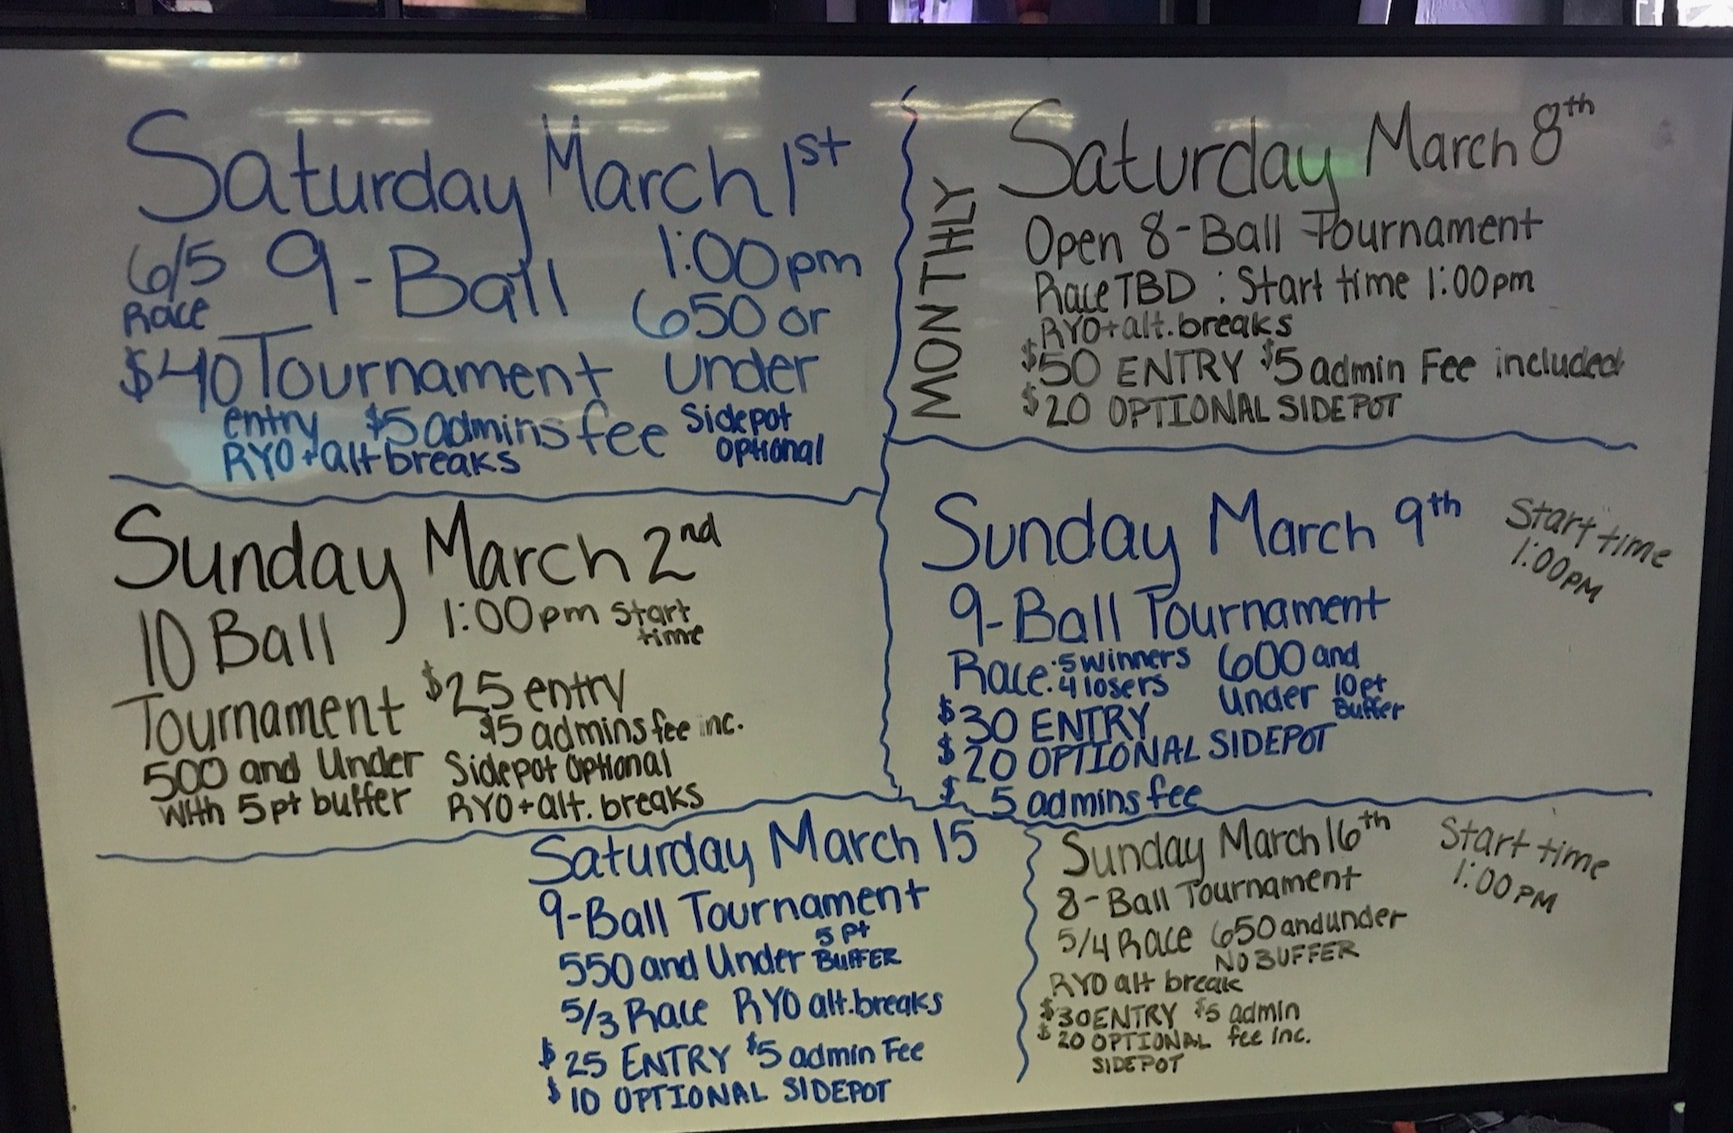 Saturday March 1st
6/5 Race 9-Ball 1:00pm
650 or under
$40 Tournament
entry $5 admins fee Sidepot optional
RYO + alt breaks
MONTHLY
Saturday March 8th
Open 8-Ball Tournament
Race TBD : Start time 1:00pm
RYO + alt. breaks
$50 ENTRY $5 admin Fee included
$20 OPTIONAL SIDEPOT
Sunday March 2nd
10 Ball 1:00pm start time
Tournament $25 entry
$5 admins fee inc.
500 and Under Sidepot optional
with 5pt buffer RYO + alt. breaks
Sunday March 9th
Start time
1:00PM
9-Ball Tournament
Race: 5 winners 600 and
4 losers Under 10pt Buffer
$30 ENTRY
$20 OPTIONAL SIDEPOT
$ 5 admins fee
Saturday March 15
9-Ball Tournament
550 and Under 5 pt BUFFER
5/3 Race RYO alt.breaks
$25 ENTRY $5 admin Fee
$10 OPTIONAL SIDEPOT
Sunday March 16th
Start time
1:00PM
8-Ball Tournament
5/4 Race 650 and under
NO BUFFER
RYO alt break
$30 ENTRY $5 admin
$20 OPTIONAL fee inc.
SIDEPOT